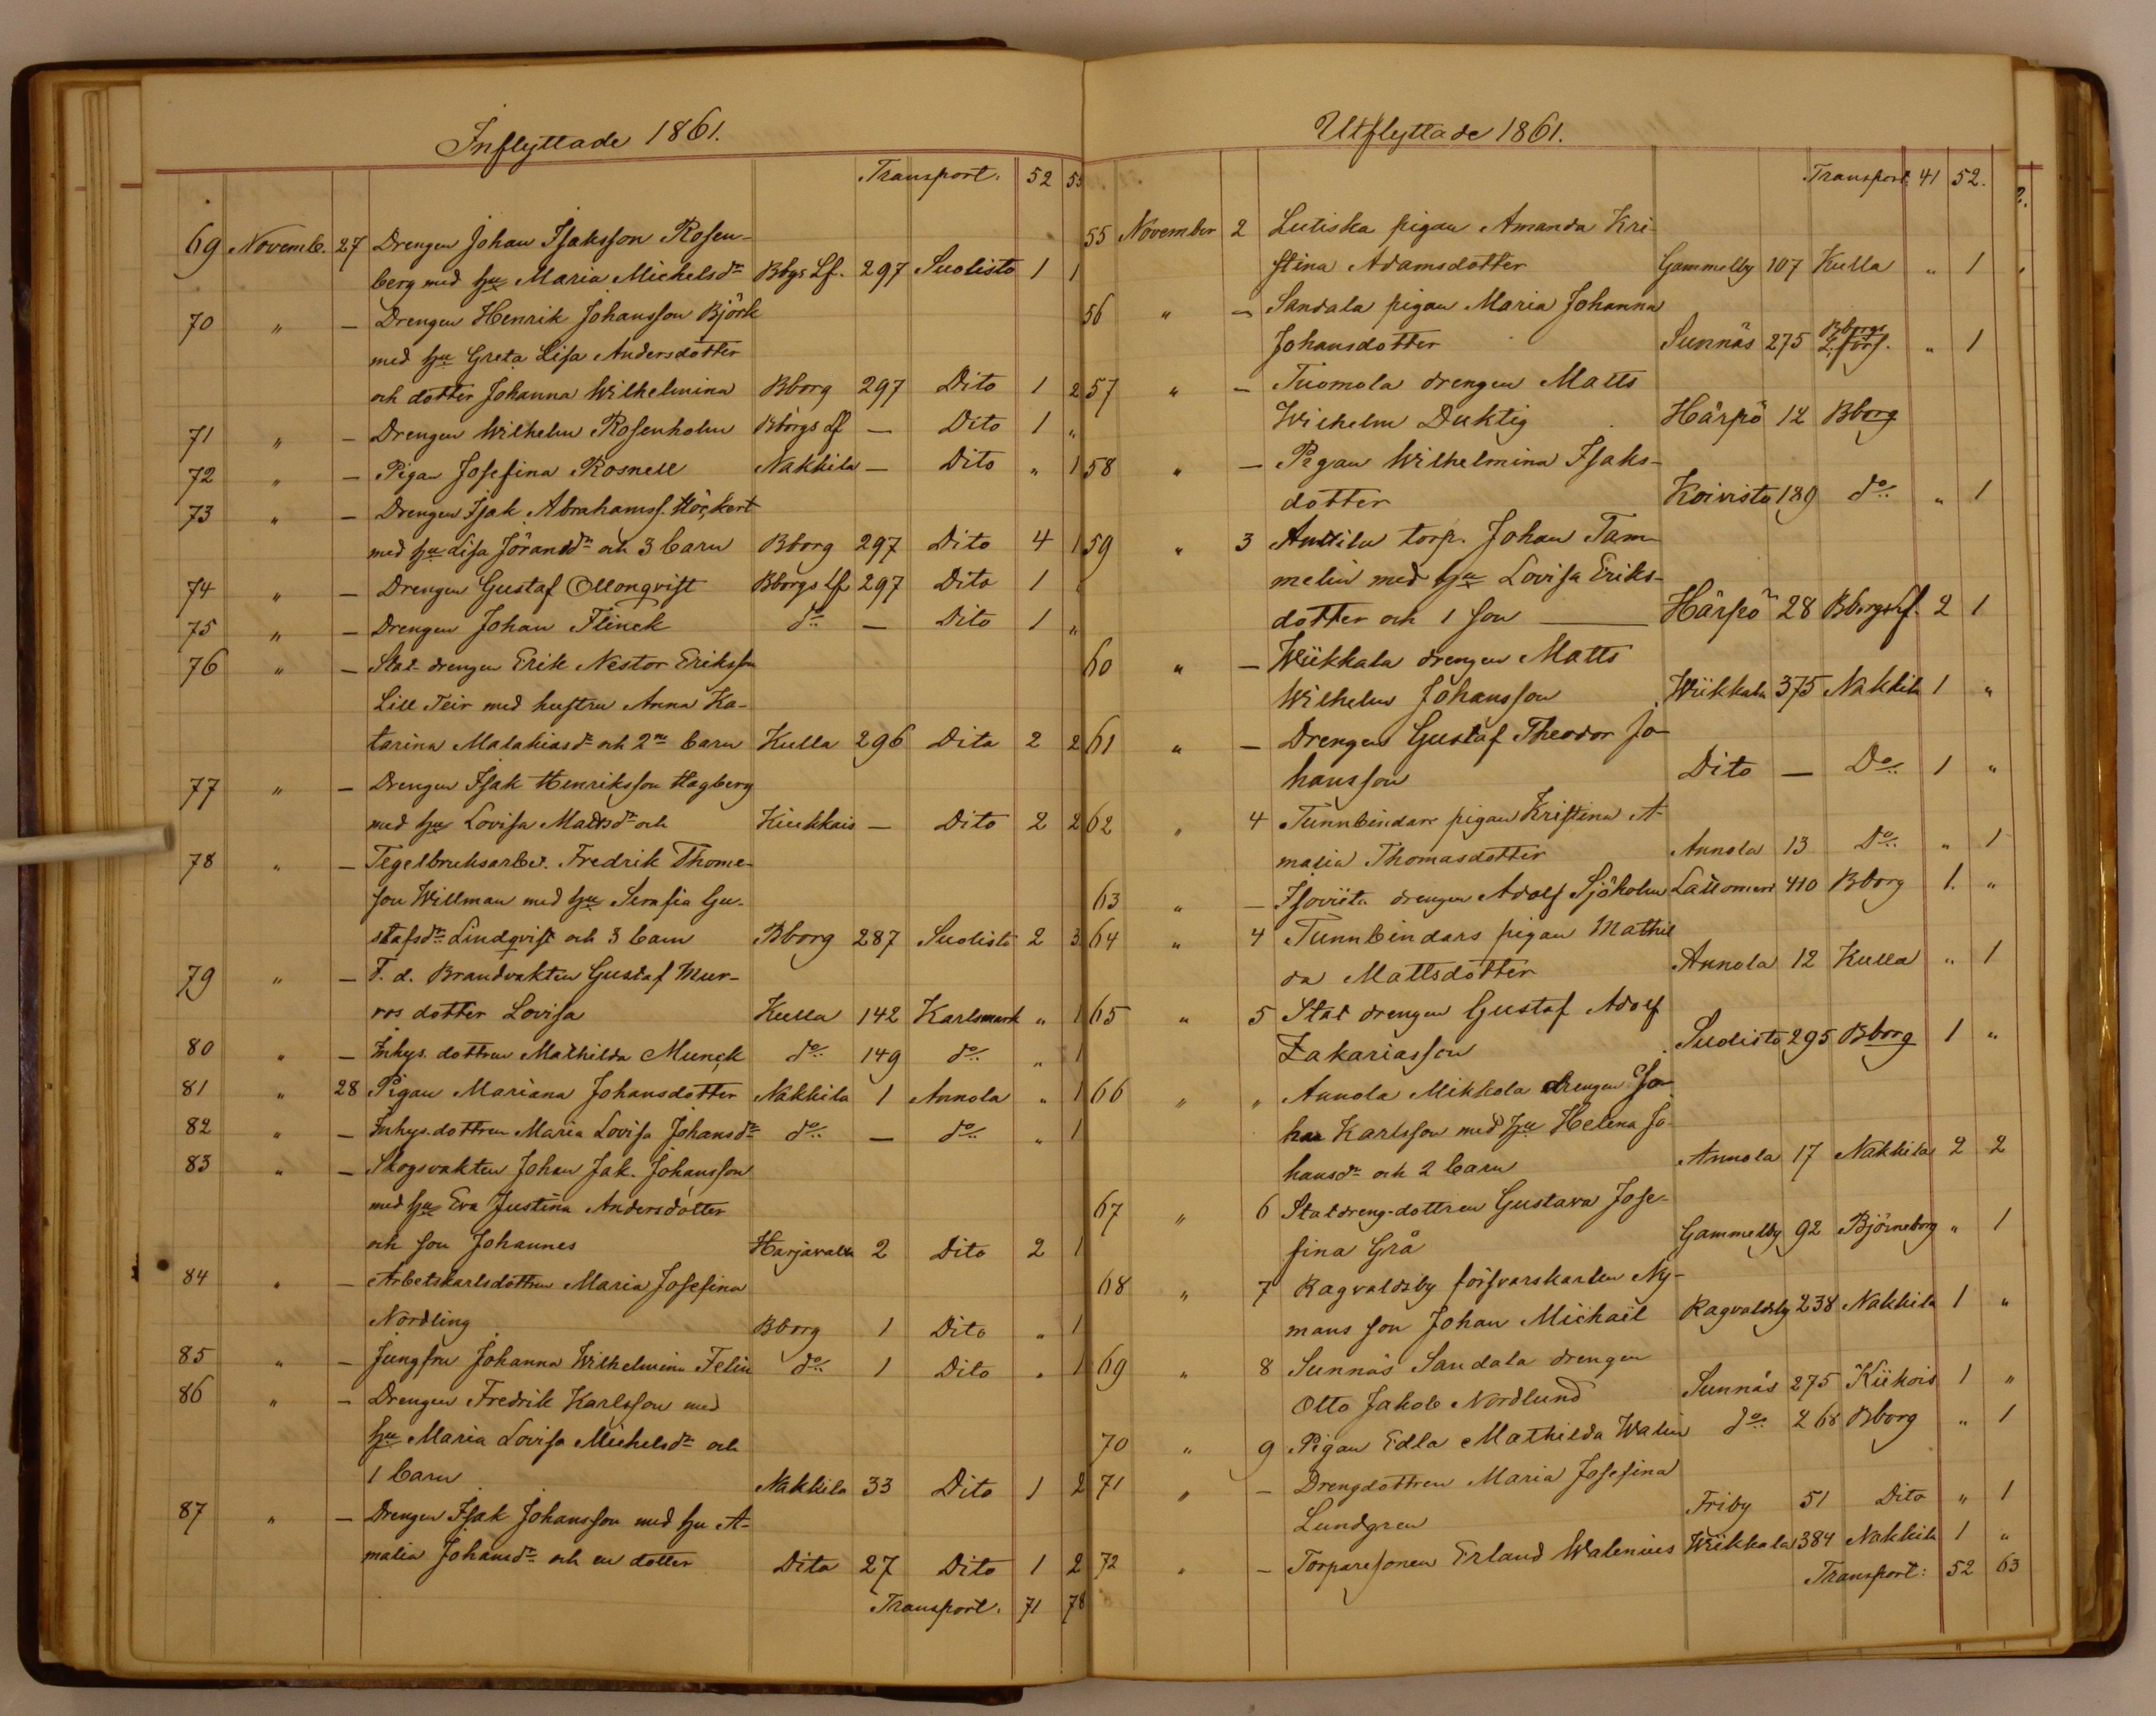 Inflyttade 1861.
Transport. 52 55
69 Novemb. 27 Drengen Johan Isaksson Rosen-
berg med hu Maria Michelsdr Bbgs Lf. 297 Suolisto 1 1
70 " — Drengen Henrik Johansson Björk
med hu Greta Lisa Andersdotter
och dotter Johanna Wilhelmina Bborg 297 Dito 1 2
71 " — Drengen Wilhelm Rosenholm Bborgs Lf — Dito 1 "
72 " — Pigan Josefina Rosnell Nakkila — Dito " 1
73 " — Drengen Isak Abrahamss. Höckert
med hu Lisa Jöransdr och 3 barn Bborg 297 Dito 4 1
74 " — Drengen Gustaf Ollonqvist Bborgs Lf 297 Dito 1 "
75 " — Drengen Johan Flinck do — Dito 1 "
76 " — Stat-drengen Erik Nestor Eriksson
Lill Teir med hustru Anna Ka-
tarina Malakiasdr och 2ne barn Kulla 296 Dito 2 2
77 " — Drengen Isak Henriksson Hagberg
med hu Lovisa Mattsdr och Kiukkais — Dito 2 2
78 " — Tegelbruksarbet. Fredrik Thome-
son Willman med hu Serafia Gu-
stafsdr Lindqvist och 3 barn Bborg 287 Suolisto 2 3
79 " — F. d. Brandvakten Gustaf Mur-
ros dotter Lovisa Kulla 142 Karlsmark " 1
80 " — Inhys. dottren Mathilda Munck do 149 do " 1
81 " 28 Pigan Mariana Johansdotter Nakkila 1 Annola " 1
82 " — Inhys. dottren Maria Lovisa Johansdr do — do " 1
83 " — Skogsvakten Johan Jak. Johansson
med hu Eva Justina Andersdotter
och son Johannes Harjavalta 2 Dito 2 1
84 " — Arbetskarlsdottren Maria Josefina
Nordling Bborg 1 Dito " 1
85 " — Jungfru Johanna Wilhelmina Felin do 1 Dito " 1
86 " — Drengen Fredrik Karlsson med
hu Maria Lovisa Michelsdr och
1 barn Nakkila 33 Dito 1 2
87 " — Drengen Isak Johansson med hu A-
malia Johansdr och en dotter Dito 27 Dito 1 2
Transport. 71 78
Utflyttade 1861.
Transport. 41 52.
55 November 2 Lutiska pigan Amanda Kri-
stina Adamsdotter Gammelby 107 Kulla " 1
56 " — Sandala pigan Maria Johanna
Johansdotter Sunnäs 275 Bborgs L. förs. " 1
57 " — Tuomola drengen Matts
Wilhelm Duktig Härpö 12 Bborg
58 " — Pigan Wilhelmina Isaks-
dotter Koivisto 189 do " 1
59 " 3 Anttila torp. Johan Tam-
melin med hu Lovisa Eriks-
dotter och 1 son — Härpö 28 Bborgs Lf. 2 1
60 " — Wiikkala drengen Matts
Wilhelm Johansson Wiikkala 375 Nakkila 1 "
61 " — Drengen Gustaf Theodor Jo-
hansson Dito — Do 1 "
62 " 4 Tunnbindare pigan Kristina A-
malia Thomasdotter Annola 13 Do " 1
63 " — Isoviita drengen Adolf Sjöholm Lattomeri 410 Bborg 1. "
64 " 4 Tunnbindars pigan Mathil
da Mattsdotter Annola 12 Kulla " 1
65 " 5 Stat drengen Gustaf Adolf
Zakariasson Suolisto 295 Bborg 1 "
66 " " Annola Mikkola drengen Jo-
han Karlsson med hu Helena Jo-
hansdr och 2 barn Annola 17 Nakkila 2 2
67 " 6 Statdreng-dottren Gustava Jose-
fina Grå Gammelby 92 Björneborg " 1
68 " 7 Ragvaldsby försvarskarlen Ny-
mans son Johan Michaël Ragvaldsby 238 Nakkila 1 "
69 " 8 Sunnäs Sandala drengen
Otto Jakob Nordlund Sunnäs 275 Kiikois 1 "
70 " 9 Pigan Edla Mathilda Walin do 268 Bborg " 1
71 " — Drengdottren Maria Josefina
Lundgren Friby 51 Dito " 1
72 " — Torparesonen Erland Walenius Wiikkala 384 Nakkila 1 "
Transport: 52 63